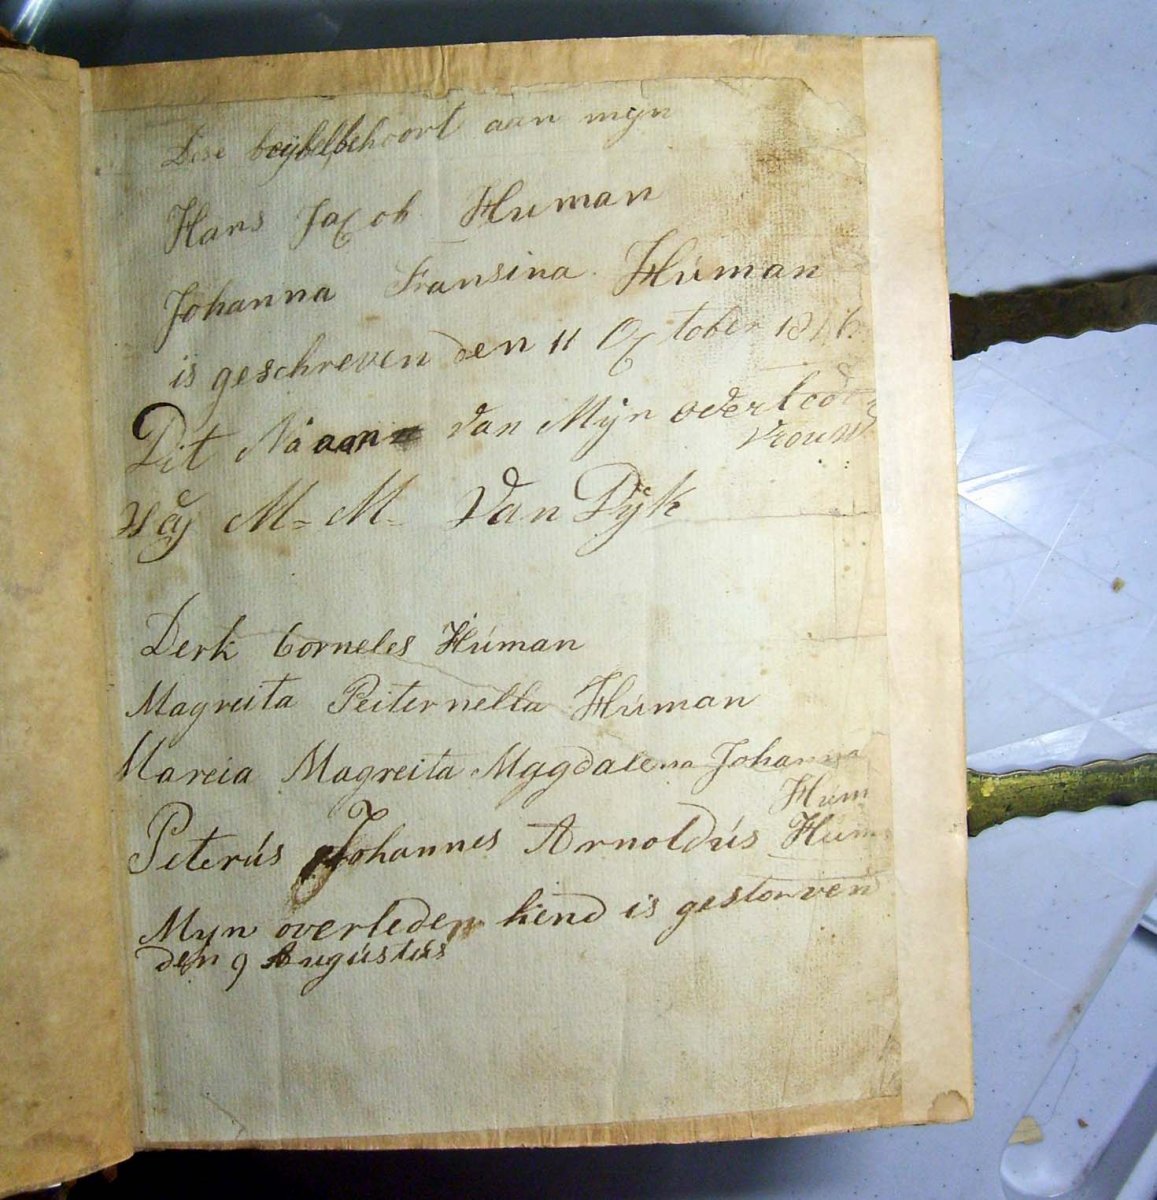 Dese beybelbehoort aan mijn
Hans Jacob Human
Johanna Fransina Húman
is geschreven den 11 October 18
Dit Naam van Mÿn overleden
vrouw
Waÿ M= M= Van Dÿk
Derk Corneles Húman
Magreita Peiternella Húman
Mareia Magreita Mggdalena Johanna
Húm
Peterús Johannes Arnoldús Húm
Myn overleden kend is gestorven
den 9 Augústús